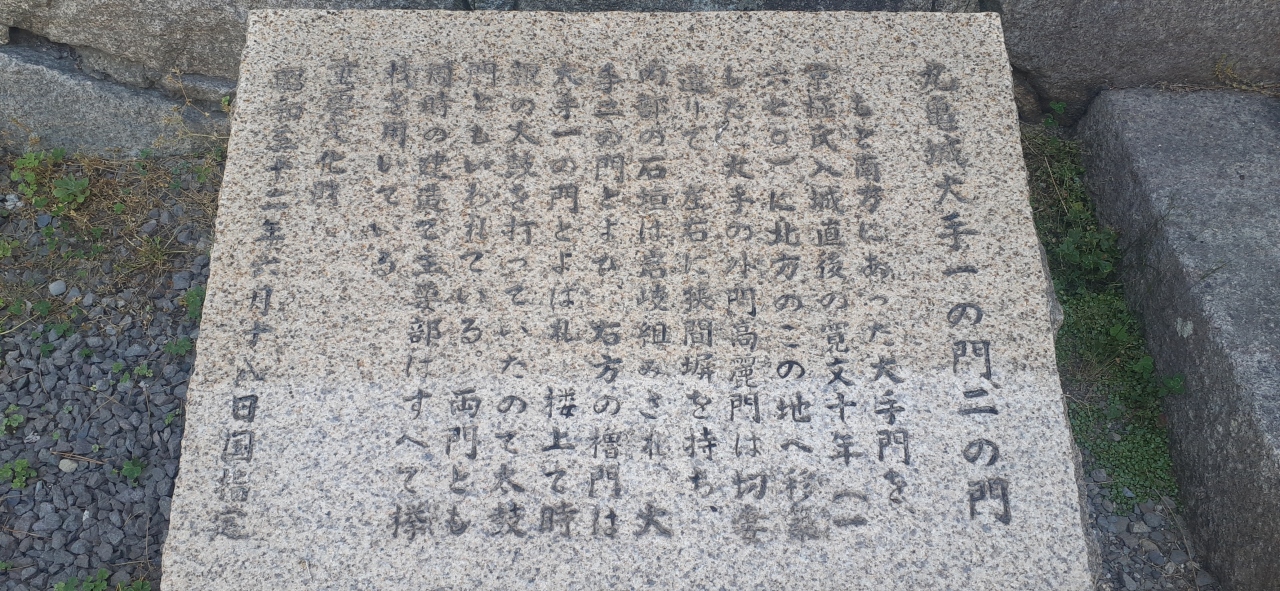 丸亀城大手一の門、二の門
もと南方にあった大手門を
京極氏入城直後の寛文十年(一
六七〇)に北方のこの地へ移築
した。大手の外門高麗門は切妻
造りで、左右に狭間塀を持ち、
内部の石垣は亀岐組みされ、大
手二の門とよび、右方の櫓門は
大手一の門とよばれ、楼上で時
報の太鼓を打っていたので太鼓
門ともいわれている。両門とも
同時の建造で主要部はすべて欅
材を用いている。
重要文化財
昭和三十二年六月十八日国指定